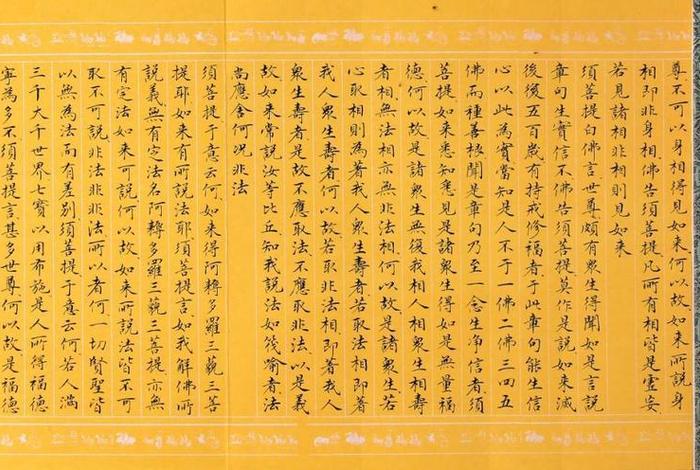 尊不可以身相得見如來何以故如來所說身
相即非身相佛告須菩提凡所有相皆是虛妄
若見諸相非相則見如來
須菩提白佛言世尊頗有衆生得聞如是言說
章句生實信不佛告須菩提莫作是說如來滅
後後五百歲有持戒修福者于此章句能生信
心以此為實當知是人不于一佛二佛三四五
佛而種善根聞是章句乃至一念生净信者須
菩提如來悉知悉見是諸衆生得如是無量福
德何以故是諸衆生無復我相人相衆生相壽
者相無法相亦無非法相何以故是諸衆生若
心取相則為著我人衆生壽者若取法相即著
我人衆生壽者何以故若取非法相即著我人
衆生壽者是故不應取法不應取非法以是義
故如來常說汝等比丘知我說法如筏喻者法
尚應舍何况非法
須菩提于意云何如來得阿耨多羅三藐三菩
提耶如來有所說法耶須菩提言如我解佛所
說義無有定法名阿耨多羅三藐三菩提亦無
有定法如來可說何以故如來所說法皆不可
取不可說非法非非法所以者何一切賢聖皆
以無為法而有差別須菩提于意云何若人滿
三千大千世界七寶以用布施是人所得福德
寧為多不須菩提言甚多世尊何以故是福德